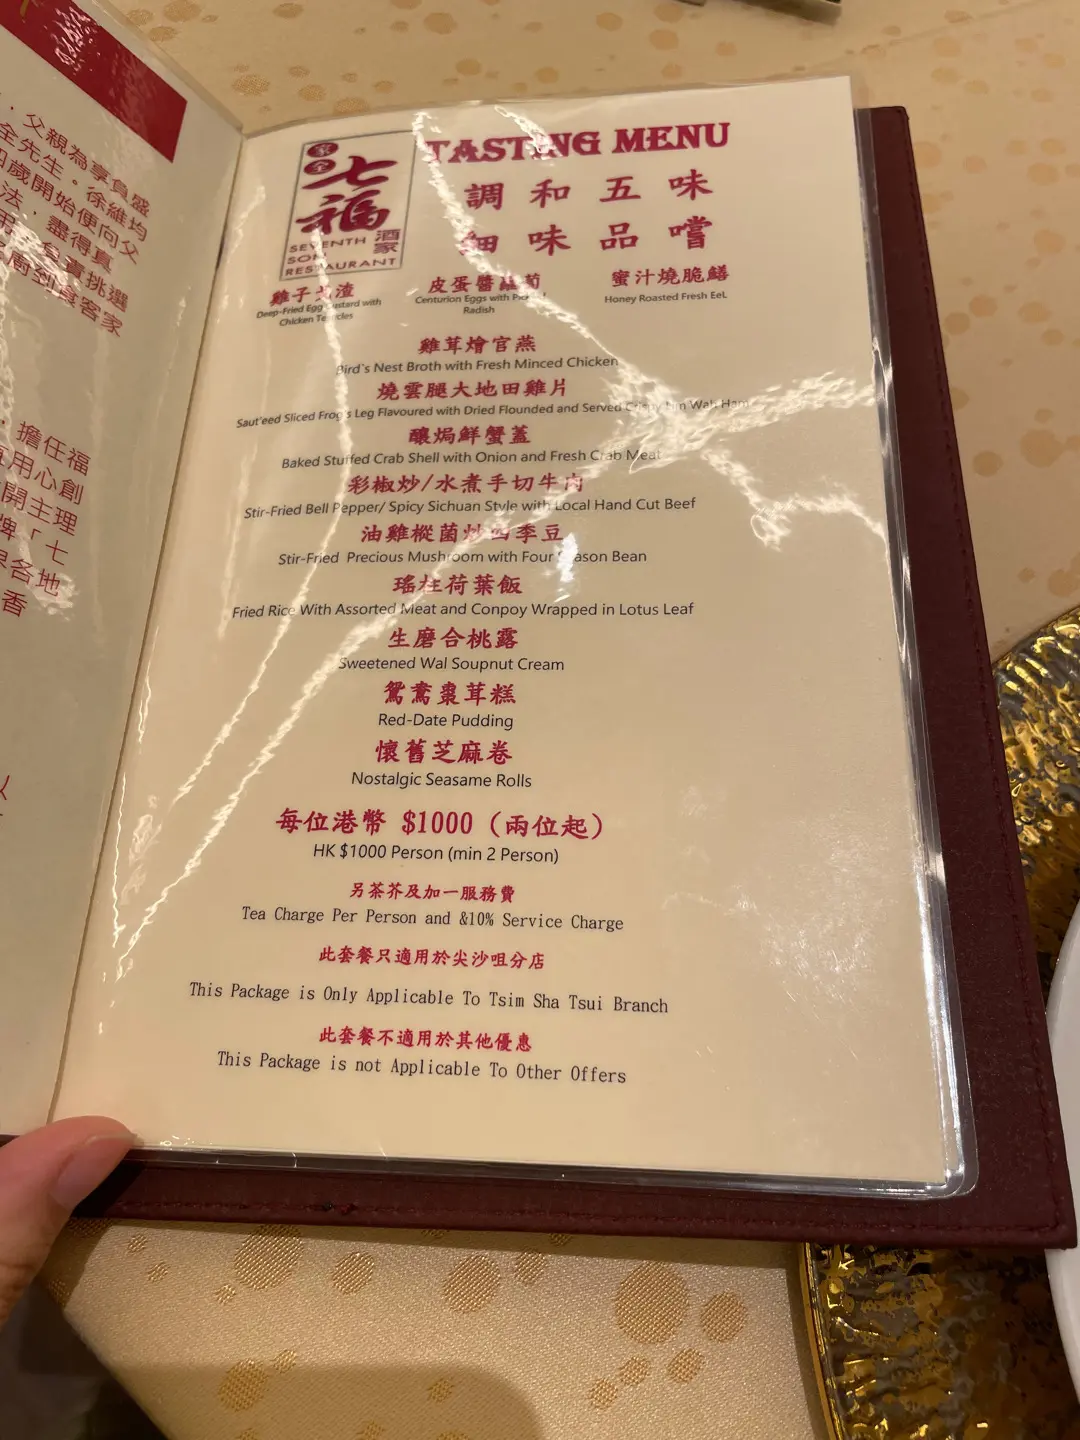 ，父親為享負盛
全先生。徐維均
歲開始便向父
法，盡得真
負責挑選
廚到食客家
，擔任福
用心創
開主理
牌「七
各地
香
家全
七福
酒家
SEVENTH
SON
RESTAURANT
TASTING MENU
調和五味
細味品嚐
雞子戈渣
Deep-Fried Egg Custard with
Chicken Testicles
皮蛋醬蘿蔔
Centurion Eggs with
Radish
蜜汁燒脆鱔
Honey Roasted Fresh EeL
雞茸燴官燕
Bird's Nest Broth with Fresh Minced Chicken
燒雲腿大地田雞片
Saut'eed Sliced Frog's Leg Flavoured with Dried Flounded and Served Crispy Jim Wah Ham
釀焗鮮蟹蓋
Baked Stuffed Crab Shell with Onion and Fresh Crab Meat
彩椒炒/水煮手切牛肉
Stir-Fried Bell Pepper/ Spicy Sichuan Style with Local Hand Cut Beef
油雞樅菌炒四季豆
Stir-Fried Precious Mushroom with Four Season Bean
瑤柱荷葉飯
Fried Rice With Assorted Meat and Conpoy Wrapped in Lotus Leaf
生磨合桃露
Sweetened Wal Soupnut Cream
鴛鴦棗茸糕
Red-Date Pudding
懷舊芝麻卷
Nostalgic Seasame Rolls
每位港幣 $1000 (兩位起)
HK $1000 Person (min 2 Person)
另茶芥及加一服務費
Tea Charge Per Person and &10% Service Charge
此套餐只適用於尖沙咀分店
This Package is Only Applicable To Tsim Sha Tsui Branch
此套餐不適用於其他優惠
This Package is not Applicable To Other Offers